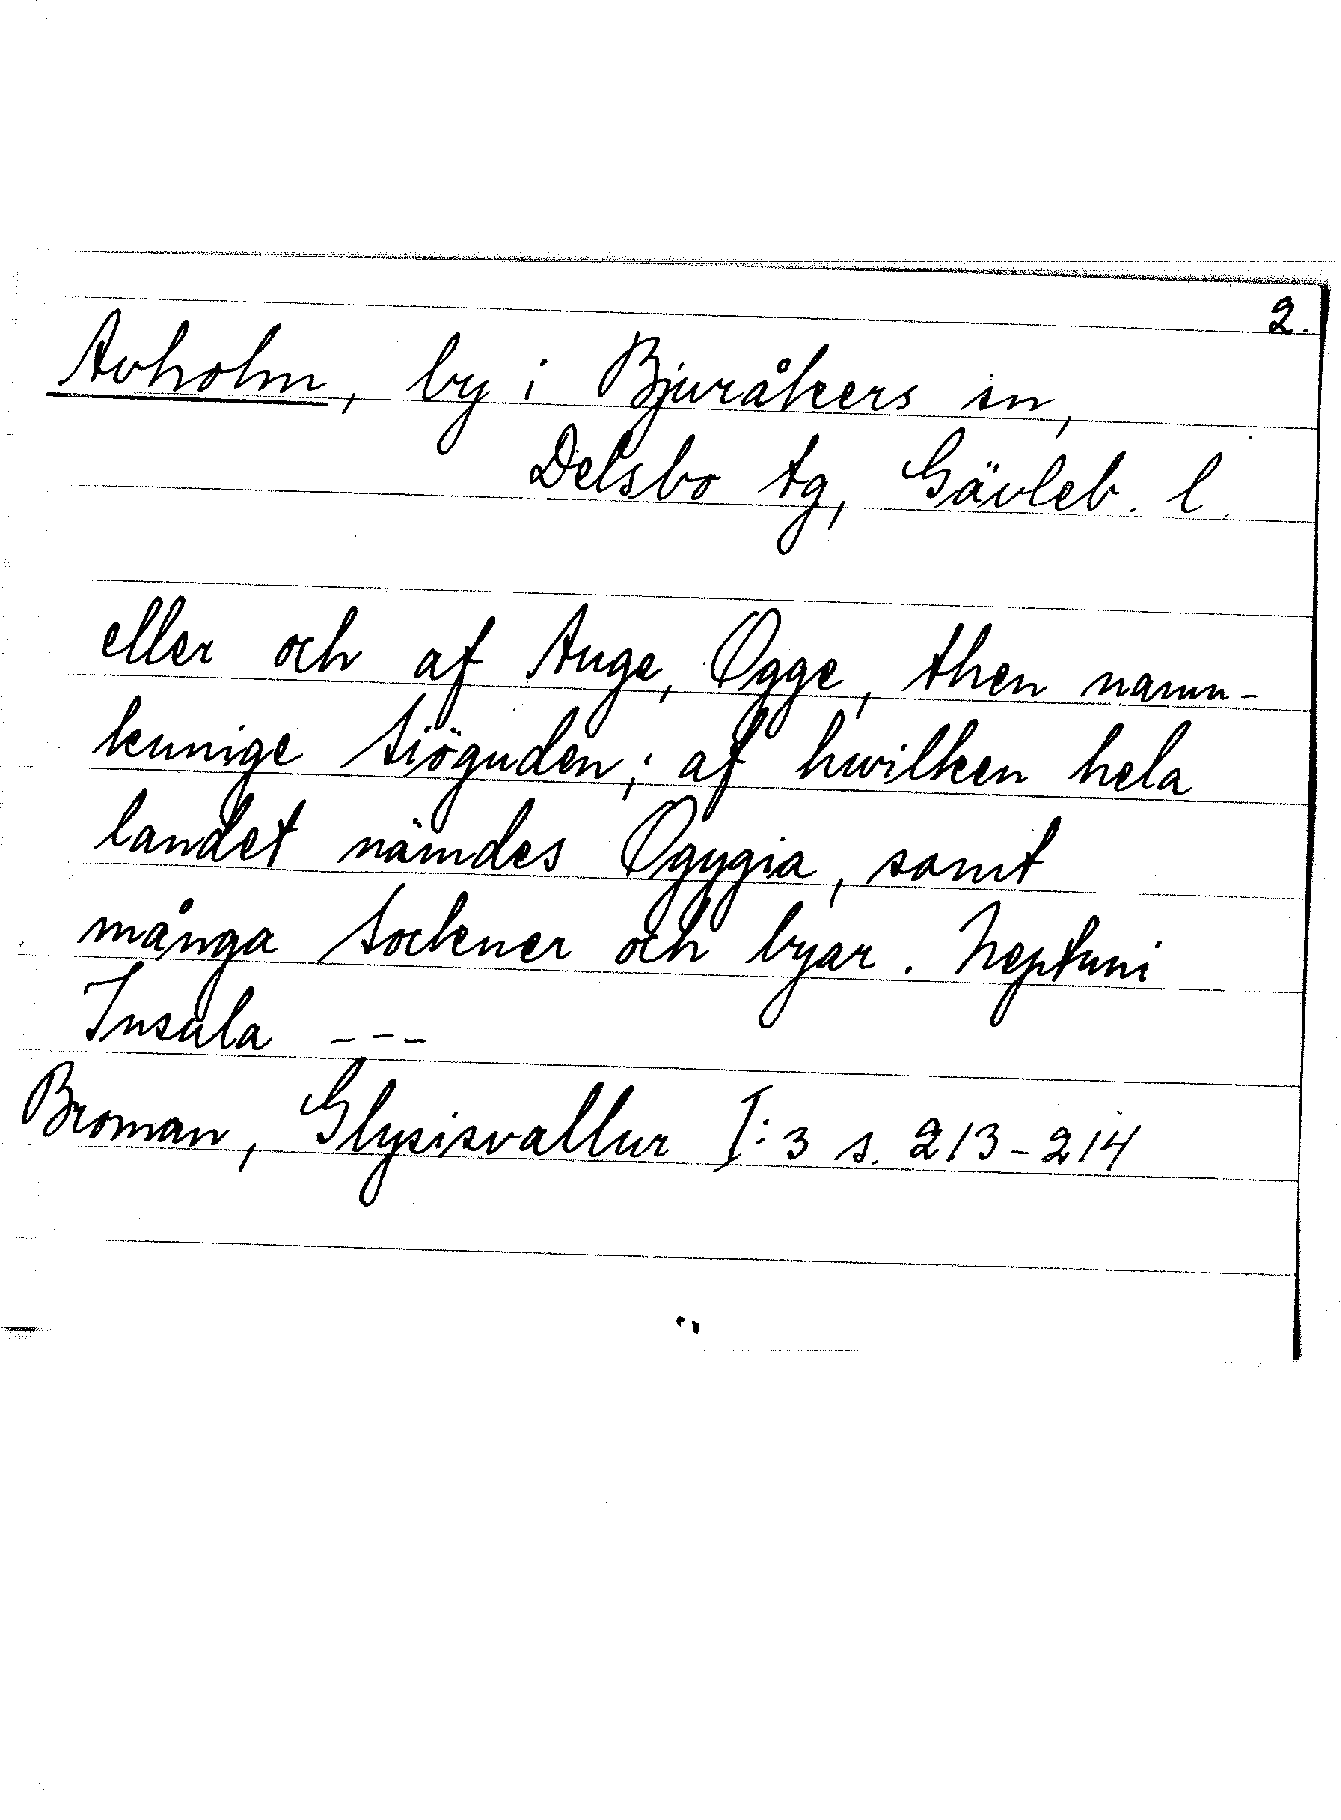 2.
Avholm, by i Bjuråkers sn,
Delsbo tg, Gävleb. l.
eller och af Auge, Ogge, then namn-
kunige siöguden; af hwilken hela
landet nämdes Ogygia, samt
många sockener och byar. Neptuni
Insula ---
Broman, Glysisvallur I:3 s. 213-214